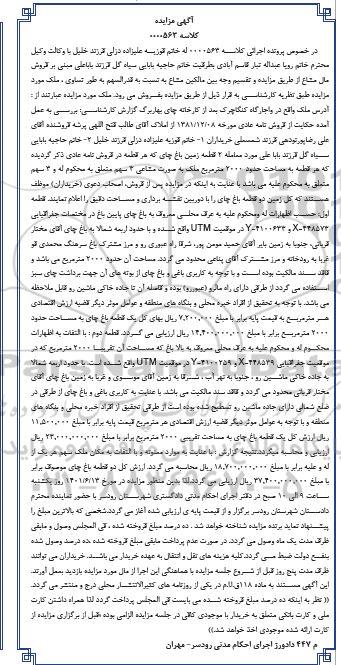 آگهی مزایده
کلاسه ۰۰۰۰۵۶۳
در خصوص پرونده اجرائی کلاسه ۰۰۰۰۵۶۳ له خانم فوزیه علیزاده دزلی فرزند خلیل با وکالت وکیل
محترم خانم رویا عبداله تبار قاسم آبادی بطرفیت خانم حاجیه بابایی سیاه گل فرزند باباعلی مبنی بر فروش
مال مشاع از طریق مزایده و تقسیم وجه بین مالکین مشاع به نسبت به قدرالسهم به طور تساوی ، ملک مورد
مزایده طبق نظریه کارشناسی به قرار ذیل از طریق مزایده بفروش می رود. ملک مورد مزایده عبارتند از :
آدرس ملک واقع در واجارگاه کنگاچرک بعد از کارخانه چای بهاربرگ گزارش کارشناسی: بررسی به عمل
آمده حکایت از فروش نامه عادی مورخه ۱۳۸۱/۱۲/۰۸ از املاک آقای طالب فتح اللهی پرشه فروشنده آقای
علی رضاپورنودهی فرزند شمسعلی خریداران ۱- خانم فوزیه علیزاده دزلی فرزند خلیل ۲- خانم حاجیه بابایی
سیاه گل فرزند بابا علی مورد معامله ۲ قطعه زمین باغ چای که هر قطعه در فروش نامه عادی ذکر گردیده
که هر قطعه به مساحت حدود ۲۰۰۰ مترمربع ملک به صورت مشاعی ۳ سهم متعلق به محکوم له و ۳ سهم
متعلق به محکوم علیه می باشد با عنایت به اینکه در مزایده پس از فروش، اصحاب دعوی (خریداران) موظف
هستند که کل زمین دو قطعه باغ چای را با دوربین نقشه برداری و مساحت دقیق را اعلام نمایند. قطعه
اول: حسب اظهارات له ومحکوم علیه به عرف محلی معروف به باغ چای پایین باغ در مختصات جغرافیایی
X-۴۴۸۵۷۳ و Y-۴۱۰۰۶۳۳ در موقعیت UTM واقع شده و با حدود اربعه شمالا به باغ چای آقای مختار
قربانی، جنوبا به زمین بایر آقای حمید مومن پور، شرقا راه عبوری رو و مرز مشترک باغ سرهنگ محمدی قو
غربا به رودخانه و مرز مشترک آقای پناهی محدود می گردد. مساحت آن حدود ۲۰۰۰ مترمربع می باشد و
فاقد سند مالکیت بوده است و با توجه به کاربری باغی و باغ چای از بوته های آن جهت برداشت چای سبز
استفاده می گردد از طرفی دارای راه مالرو (عبوررو) بوده و فاصله آن تا جاده خاکی ماشین رو قابل ملاحظه
می باشد. با توجه به تحقیق از افراد خبره محلی و بنگاه های منطقه و عوامل موثر دیگر قضیه ارزش اقتصادی
هر مترمربع به قیمت پایه برابر با مبلغ ۷٫۲۰۰٫۰۰۰ ریال بهای کل یک قطعه باغ چای به مساحت حدود
۲۰۰۰ مترمربع برابر با مبلغ ۱۴٫۴۰۰٫۰۰۰٫۰۰۰ ریال ارزیابی می گردد. قطعه دوم : با التفات به اظهارات
محکوم له و محکوم علیه به عرف محلی معروف به بالا باغ که مساحت آن تقریبا ۲۰۰۰ مترمربع که در
موقعیت جغرافیایی X-۴۴۸۵۳۹ و Y-۴۱۰۰۲۵۹ در موقعیت UTM واقع شده است. با حدود اربعه شمالا
به جاده خاکی ماشین رو ، جنوبا به نهر آب ، شرقا به زمین آقای موسوی و غربا به زمین باغ چای آقای
مختار قربانی محدود می گردد و فاقد سند مالکیت می باشد. با عنایت به کاربری باغی و باغ چای از طرفی در
ضلع شمالی دارای جاده ماشین رو تسطیح شده بوده است از طرفی تحقیق از افراد خبره محلی و بنگاه های
منطقه و با توجه به عوامل موثر دیگر قضیه ارزش اقتصادی هر مترمربع قیمت پایه برابر با مبلغ ۱۱٫۵۰۰٫۰۰۰
ریال ارزش کل یک قطعه باغ چای به مساحت تقریبی ۲۰۰۰ مترمربع برابر با مبلغ ۲۳٫۰۰۰٫۰۰۰٫۰۰۰ ریال
ارزیابی و محاسبه میگردد.نتیجه گزارش :با عنایت به موارد معنونه و با التفات به مکان ملک سهم هر یک از
له و علیه برابر با مبلغ ۱۸٫۷۰۰٫۰۰۰٫۰۰۰ ریال محاسبه می گردد. ارزش کل دو قطعه باغ چای موصوف برابر
با مبلغ ۳۷٫۴۰۰٫۰۰۰٫۰۰۰ ریال ارزیابی می گردد.لذا بدین منظور مزایده در مورخ ۱۴۰۱/۶/۱۳ روز یکشنبه
ساعت ۹ الی ۱۰ صبح در دفتر اجرای احکام مدنی دادگستری شهرستان رودسر با حضور نماینده محترم
دادستان شهرستان رودسر برگزار و از قیمت پایه ی ارزیابی شده آغاز می گردد.شخصی که بالاترین مبلغ را
پیشنهاد نماید برنده مزایده شناخته خواهد شد . ده درصد مبلغ فروخته شده ، فی المجلس وصول و مابقی
ظرف مدت یک ماه وصول می گردد. در صورت عدم پرداخت مابقی مبلغ فروخته شده ده درصد وصول شده
بنفع دولت ضبط می گردد.کلیه هزینه های نقل و انتقال به عهده خریدار می باشد. خریداران می توانند
ظرف مدت پنج روز قبل از شروع جلسه مزایده با هماهنگی این اجرا از مال مورد مزایده بازدید بعمل آورند.
این آگهی مستند به ماده ۱۱۸ ق.ا.م در یکی از روزنامه های کثیرالانتشار محلی درج و منتشر می گردد.
(( نظر به اینکه ده درصد مبلغ فروخته شده می بایست فی المجلس پرداخت گردد لذا همراه داشتن کارت
ملی و کارت بانکی متعلق به خریدار با موجودی کافی در جلسه مزایده الزامی بوده (قبل از برگزاری مزایده از
کارت ارائه شده موجودی اخذ خواهد شد.))
م ۴۴۷ دادورز اجرای احکام مدنی رودسر- مهران